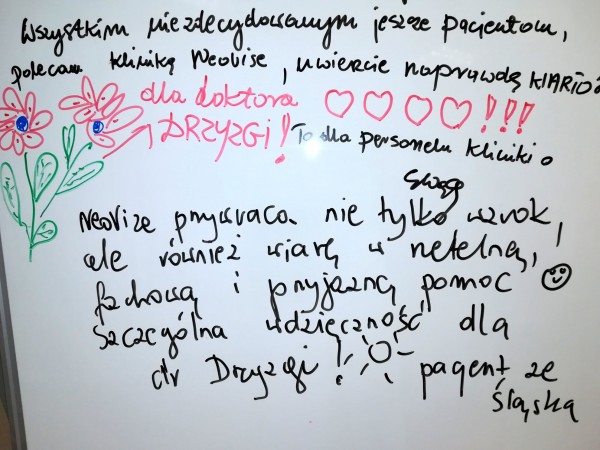 Wszystkim niezdecydowanym jeszcze pacjentom,
polecam Klinikę Neovise, uwierzcie naprawdę WARTO
dla doktora ♡♡♡♡!!!
DRZYZGI! To dla personelu kliniki
Neovize przywraca nie tylko wzrok,
ale również wiarę w rzetelną,
fachową i przyjazną pomoc ☺
szczególna wdzięczność dla
dr Drzyzgi! pacjent ze
śląska